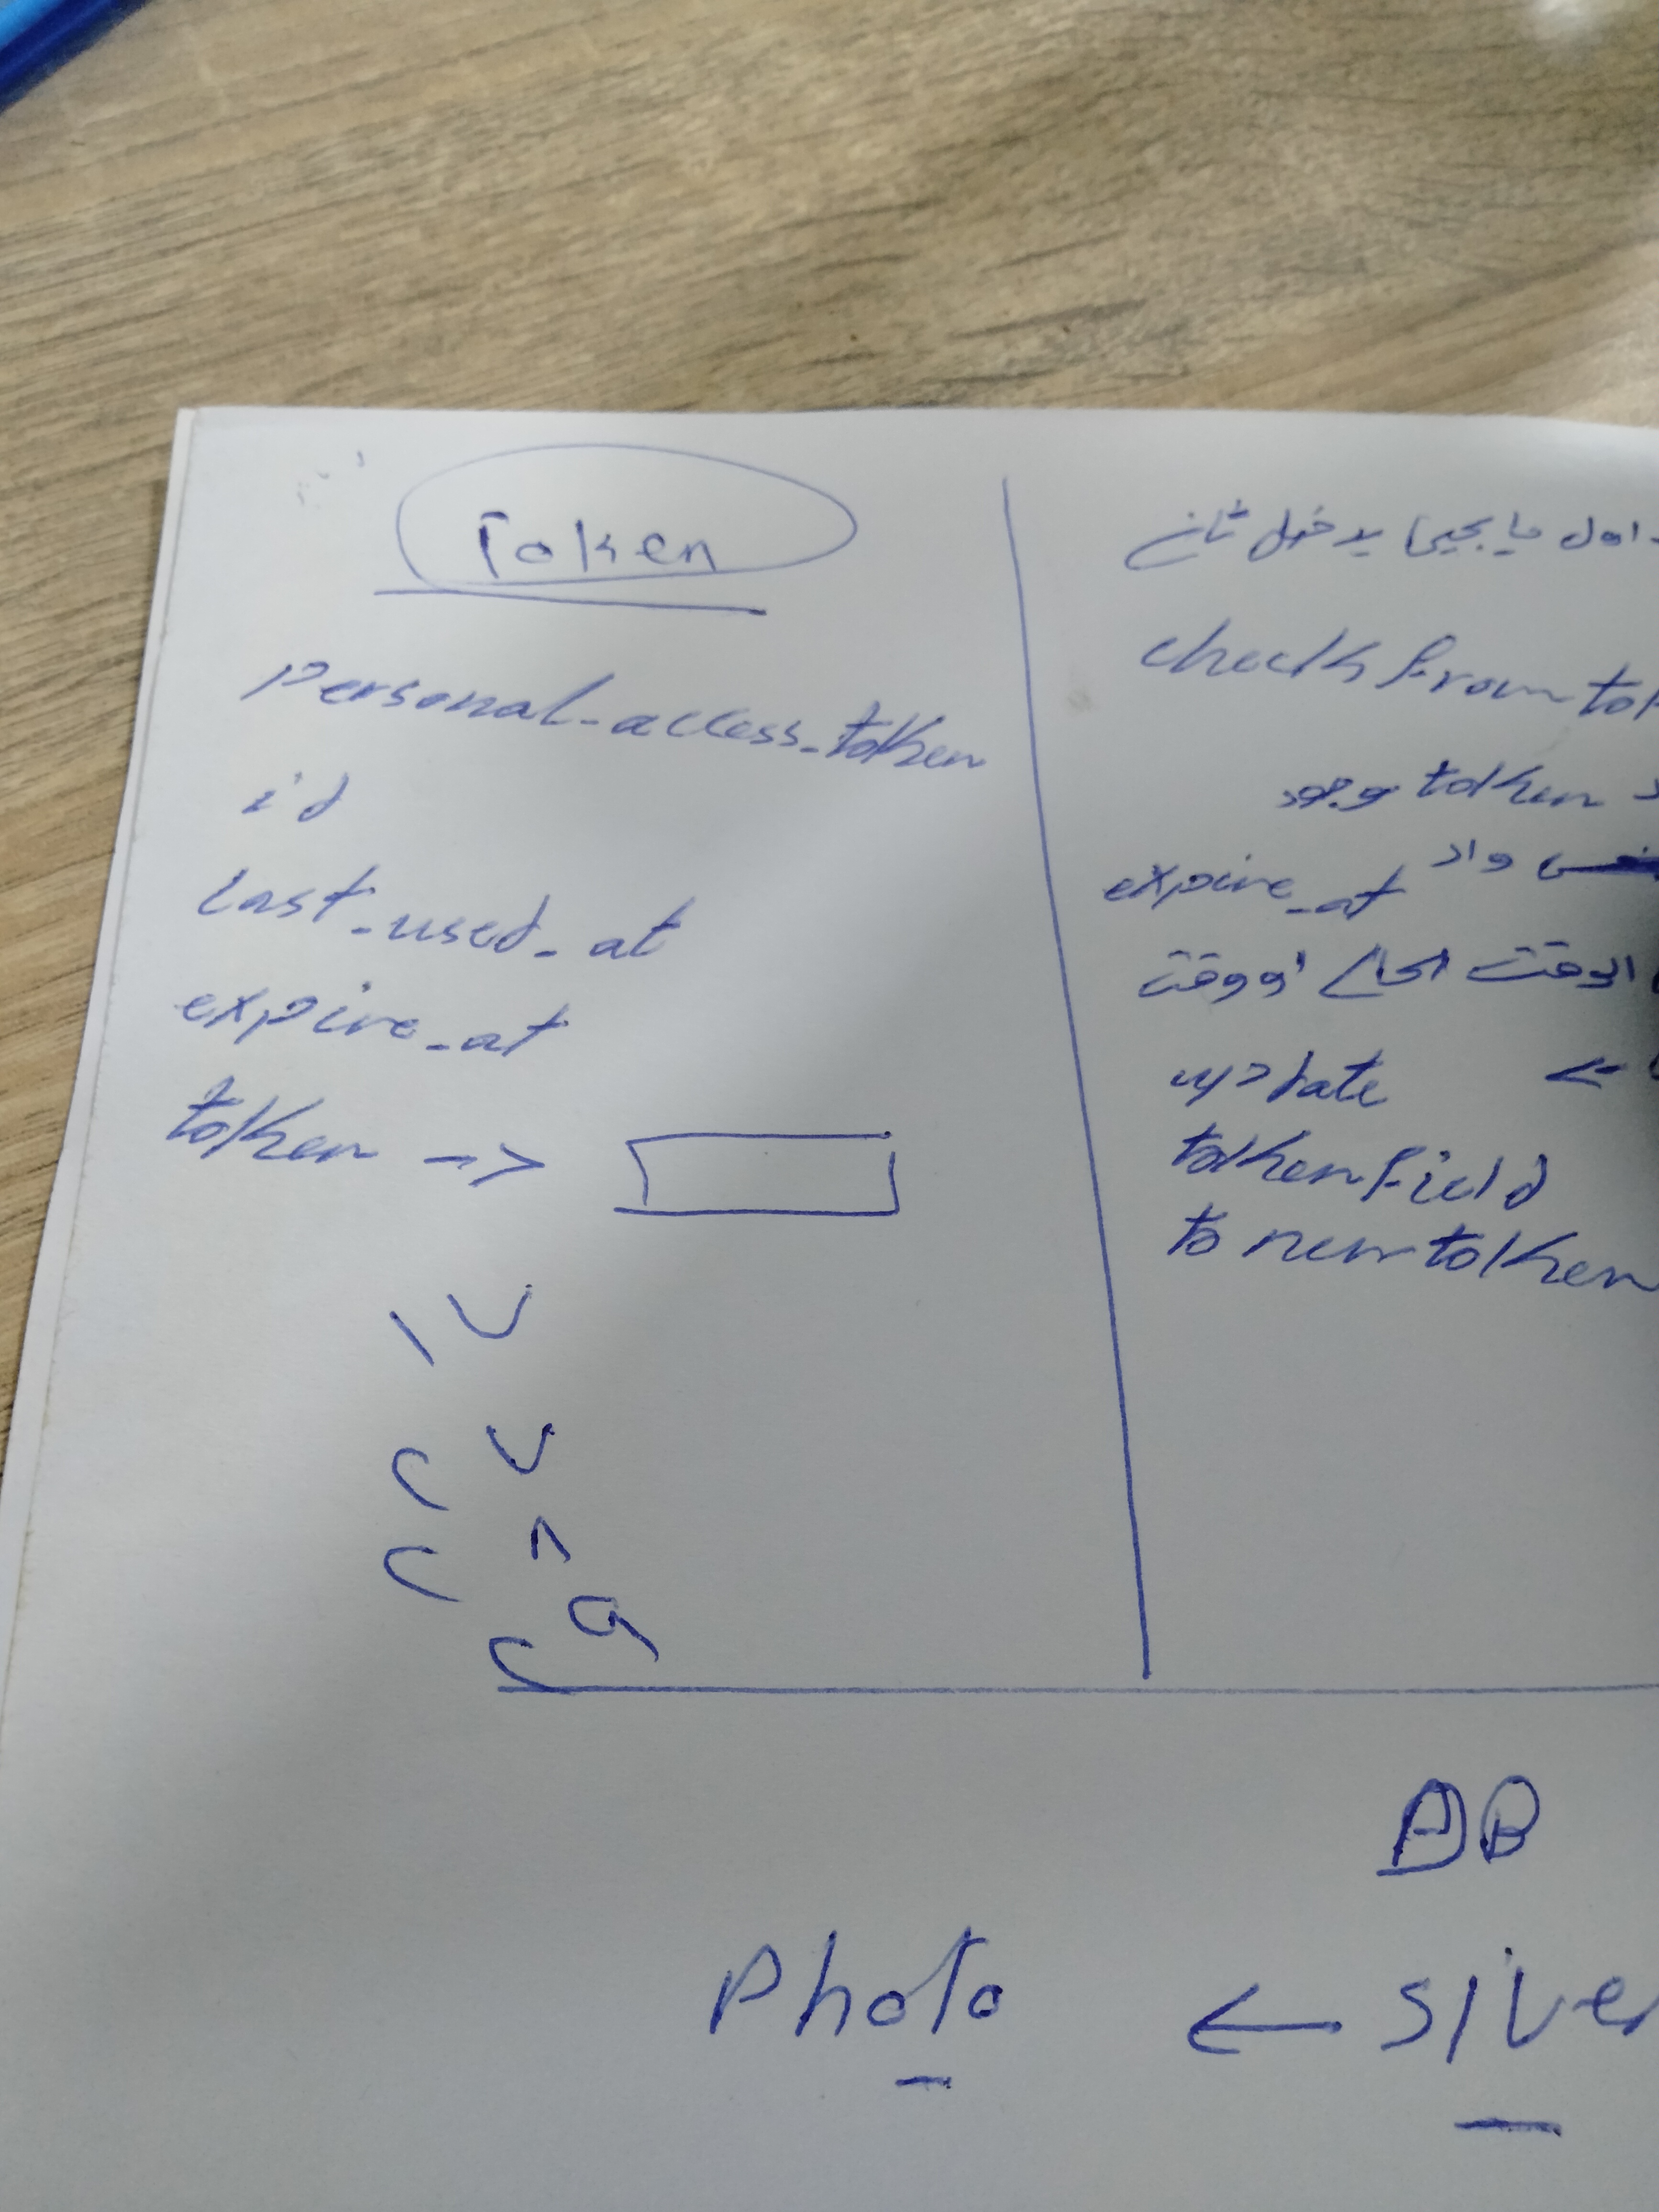 Token
personal_access_token
id
last_used_at
expire_at
token ->
١٧
٢٧
٢٨
٢٩
اول ما يجي يدخل تاني
check from tok
token موجود
expire_at واد
الوقت الحالي او وقت
update <-
token field
to new token
DB
Photo ← siver